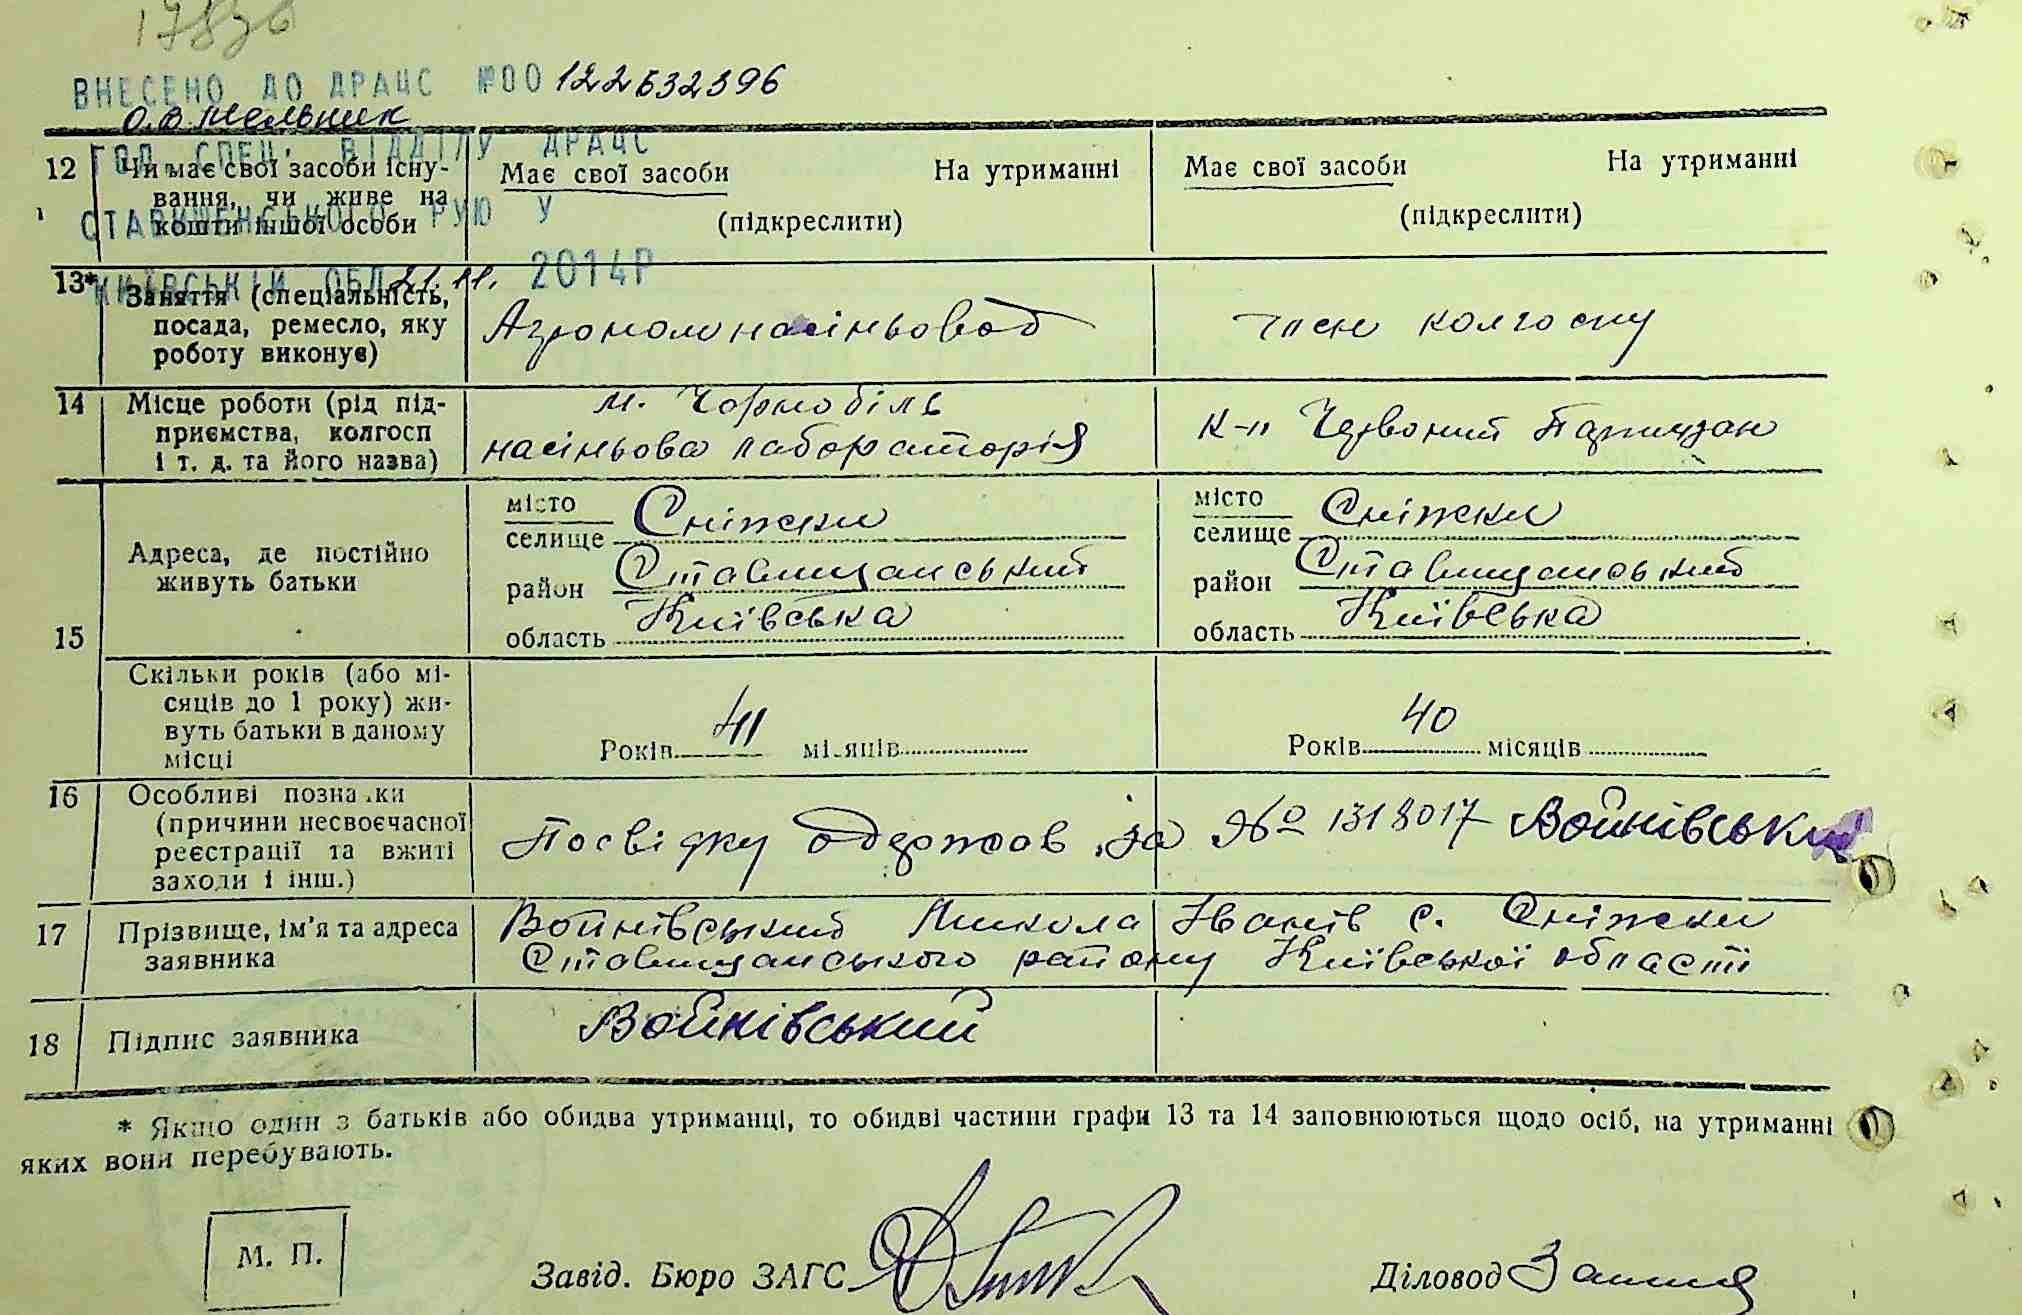 ВНЕСЕНО ДО ДРАЦС №00 122632396
О.В. Мельник
ГОЛ. СПЕЦ. ВІДДІЛУ ДРАЦС
СТАВИЩЕНСЬКОГО РУЮ У
КИЇВСЬКІЙ ОБЛ. 21.11. 2014Р
12 Чи має свої засоби існу-
вання, чи живе на
кошти іншої особи
Має свої засоби На утриманні
(підкреслити)
Має свої засоби На утриманні
(підкреслити)
13* Заняття (спеціальність,
посада, ремесло, яку
роботу виконує)
Агроном насіньовод
член колгоспу
14 Місце роботи (рід під-
приємства, колгосп
і т. д. та його назва)
м. Чорнобіль
насіньова лабораторія
к-п Червоний Партизан
15 Адреса, де постійно
живуть батьки
місто
селище Сніжки
район Ставищанський
область Київська
місто
селище Сніжки
район Ставищанський
область Київська
Скільки років (або мі-
сяців до 1 року) жи-
вуть батьки в даному
місці
Років 41 місяців
Років 40 місяців
16 Особливі познаки
(причини несвоєчасної
реєстрації та вжиті
заходи і інш.)
Посвідку одержав за № 1318017 Войнівський
17 Прізвище, ім'я та адреса
заявника
Войнівський Микола Іванів с. Сніжки
Ставищанського району Київської області
18 Підпис заявника
Войнівський
* Якщо один з батьків або обидва утриманці, то обидві частини графи 13 та 14 заповнюються щодо осіб, на утриманні
яких вони перебувають.
М. П.
Завід. Бюро ЗАГС
Діловод